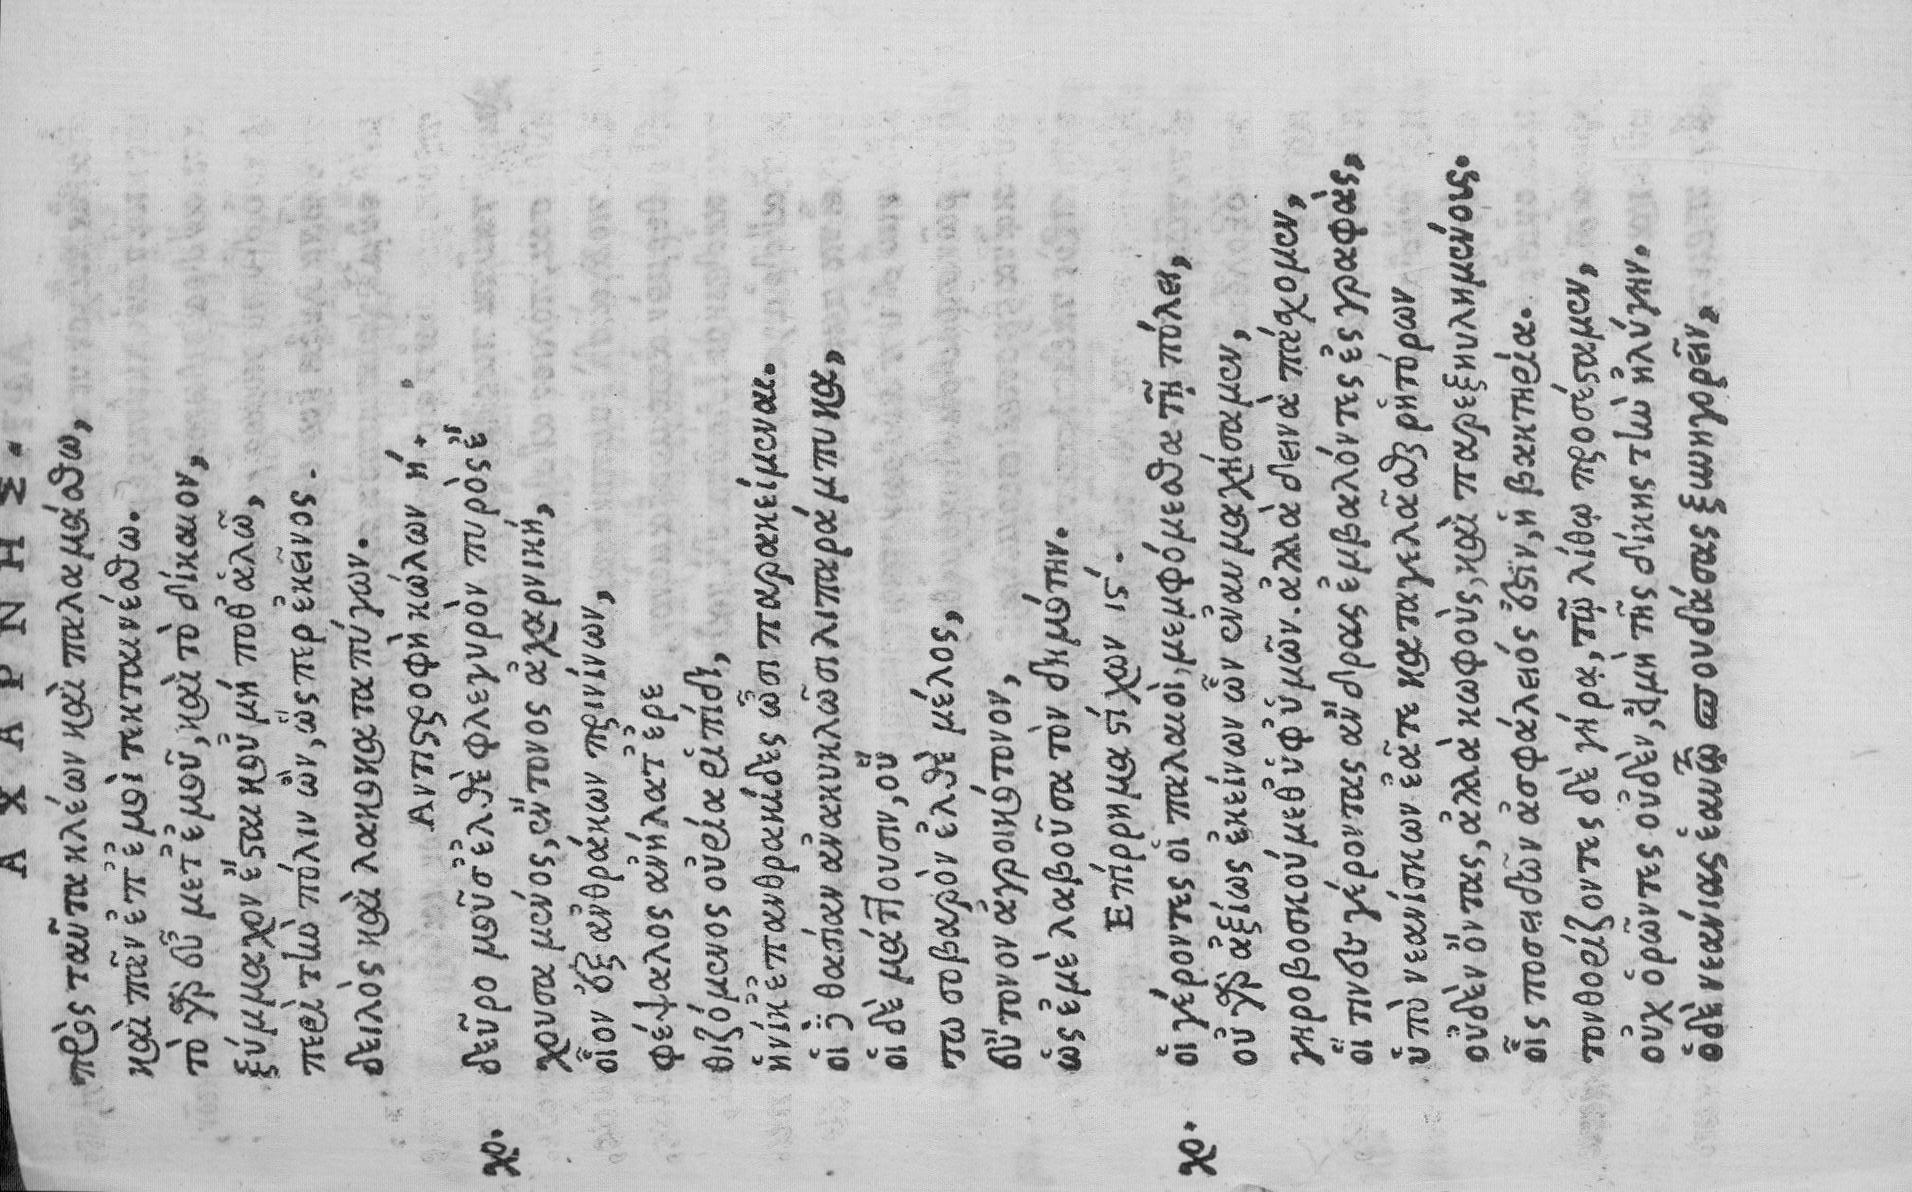 ΑΧΑΡΝΗΣ.
πρὸς ταῦτα κλέων καὶ παλαμάσθω,
καὶ πᾶν ἐπ' ἐμοὶ τεκταινέσθω.
τὸ γὰρ εὖ μετ' ἐμοῦ, καὶ τὸ δίκαιον,
ξύμμαχον ἔσται κοὐ μή ποθ' ἁλῶ,
περὶ τὴν πόλιν ὢν, ὥσπερ ἐκεῖνος.
δειλὸς καὶ λακκοκαταπύγων.
Αντιστροφὴ κώλων ή.
χο. δεῦρο μοῦσ' ἐλθὲ φλεγυρὸν πυρὸς ἔ
χουσα μένος, ἔντονος ἀχαρνική,
οἷον ἐξ ἀνθράκων πρινίνων,
φέψαλος ἀνήλατ' ἐρε
θιζόμενος οὐρίᾳ ῥιπίδι,
ἡνίκ' ἐπανθρακίδες ὦσι παρακείμεναι.
οἱ δὲ θασίαν ἀνακυκλῶσι λιπαράμπυκα,
οἱ δὲ μάττουσιν, οὕ
τω σοβαρὸν ἐλθὲ μέλος,
εὔτονον ἀγροικότονον,
ὡς ἐμὲ λαβοῦσα τὸν δημότην.
Επίρρημα στίχων ιϛ́.
χο. οἱ γέροντες οἱ παλαιοὶ, μεμφόμεθα τῇ πόλει,
οὐ γὰρ ἀξίως ἐκείνων ὧν ἐναυμαχήσαμεν,
γηροβοσκούμεθ' ὑφ' ὑμῶν. ἀλλὰ δεινὰ πάσχομεν,
οἵ τινες γέροντας ἄνδρας ἐμβαλόντες ἐς γραφὰς,
ὑπὸ νεανίσκων ἐᾶτε καταγελᾶσθαι ῥητόρων
οὐδὲν ὄντας, ἀλλὰ κωφοὺς, καὶ παρεξηυλημένους.
οἷς ποσειδῶν ἀσφάλειός ἐστιν, ἡ βακτηρία.
τονθορίζοντες δὲ γήρᾳ, τῷ λίθῳ προσέσταμεν,
οὐχ ὁρῶντες οὐδὲν, εἰ μὴ τῆς δίκης τὴν ἠλύγην.
ὁ δὲ νεανίας ἑαυτῷ σπουδάσας ξυνηγορεῖν,